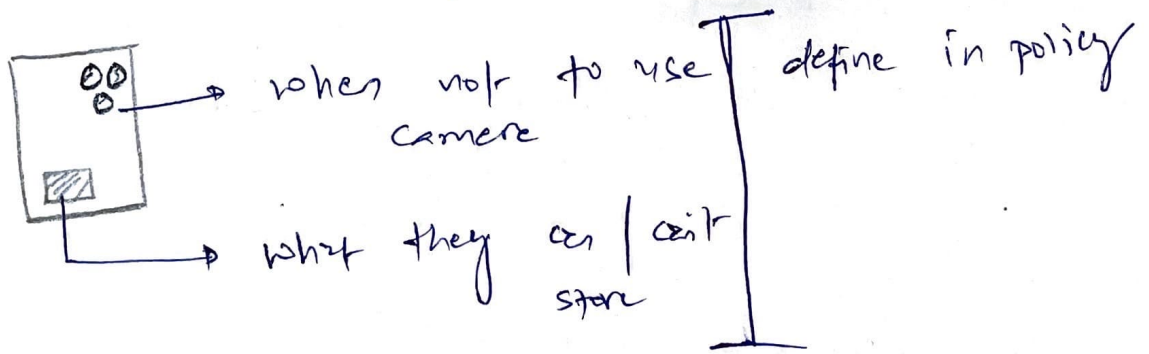 when not to use
camera
define in policy
what they can / can't
store